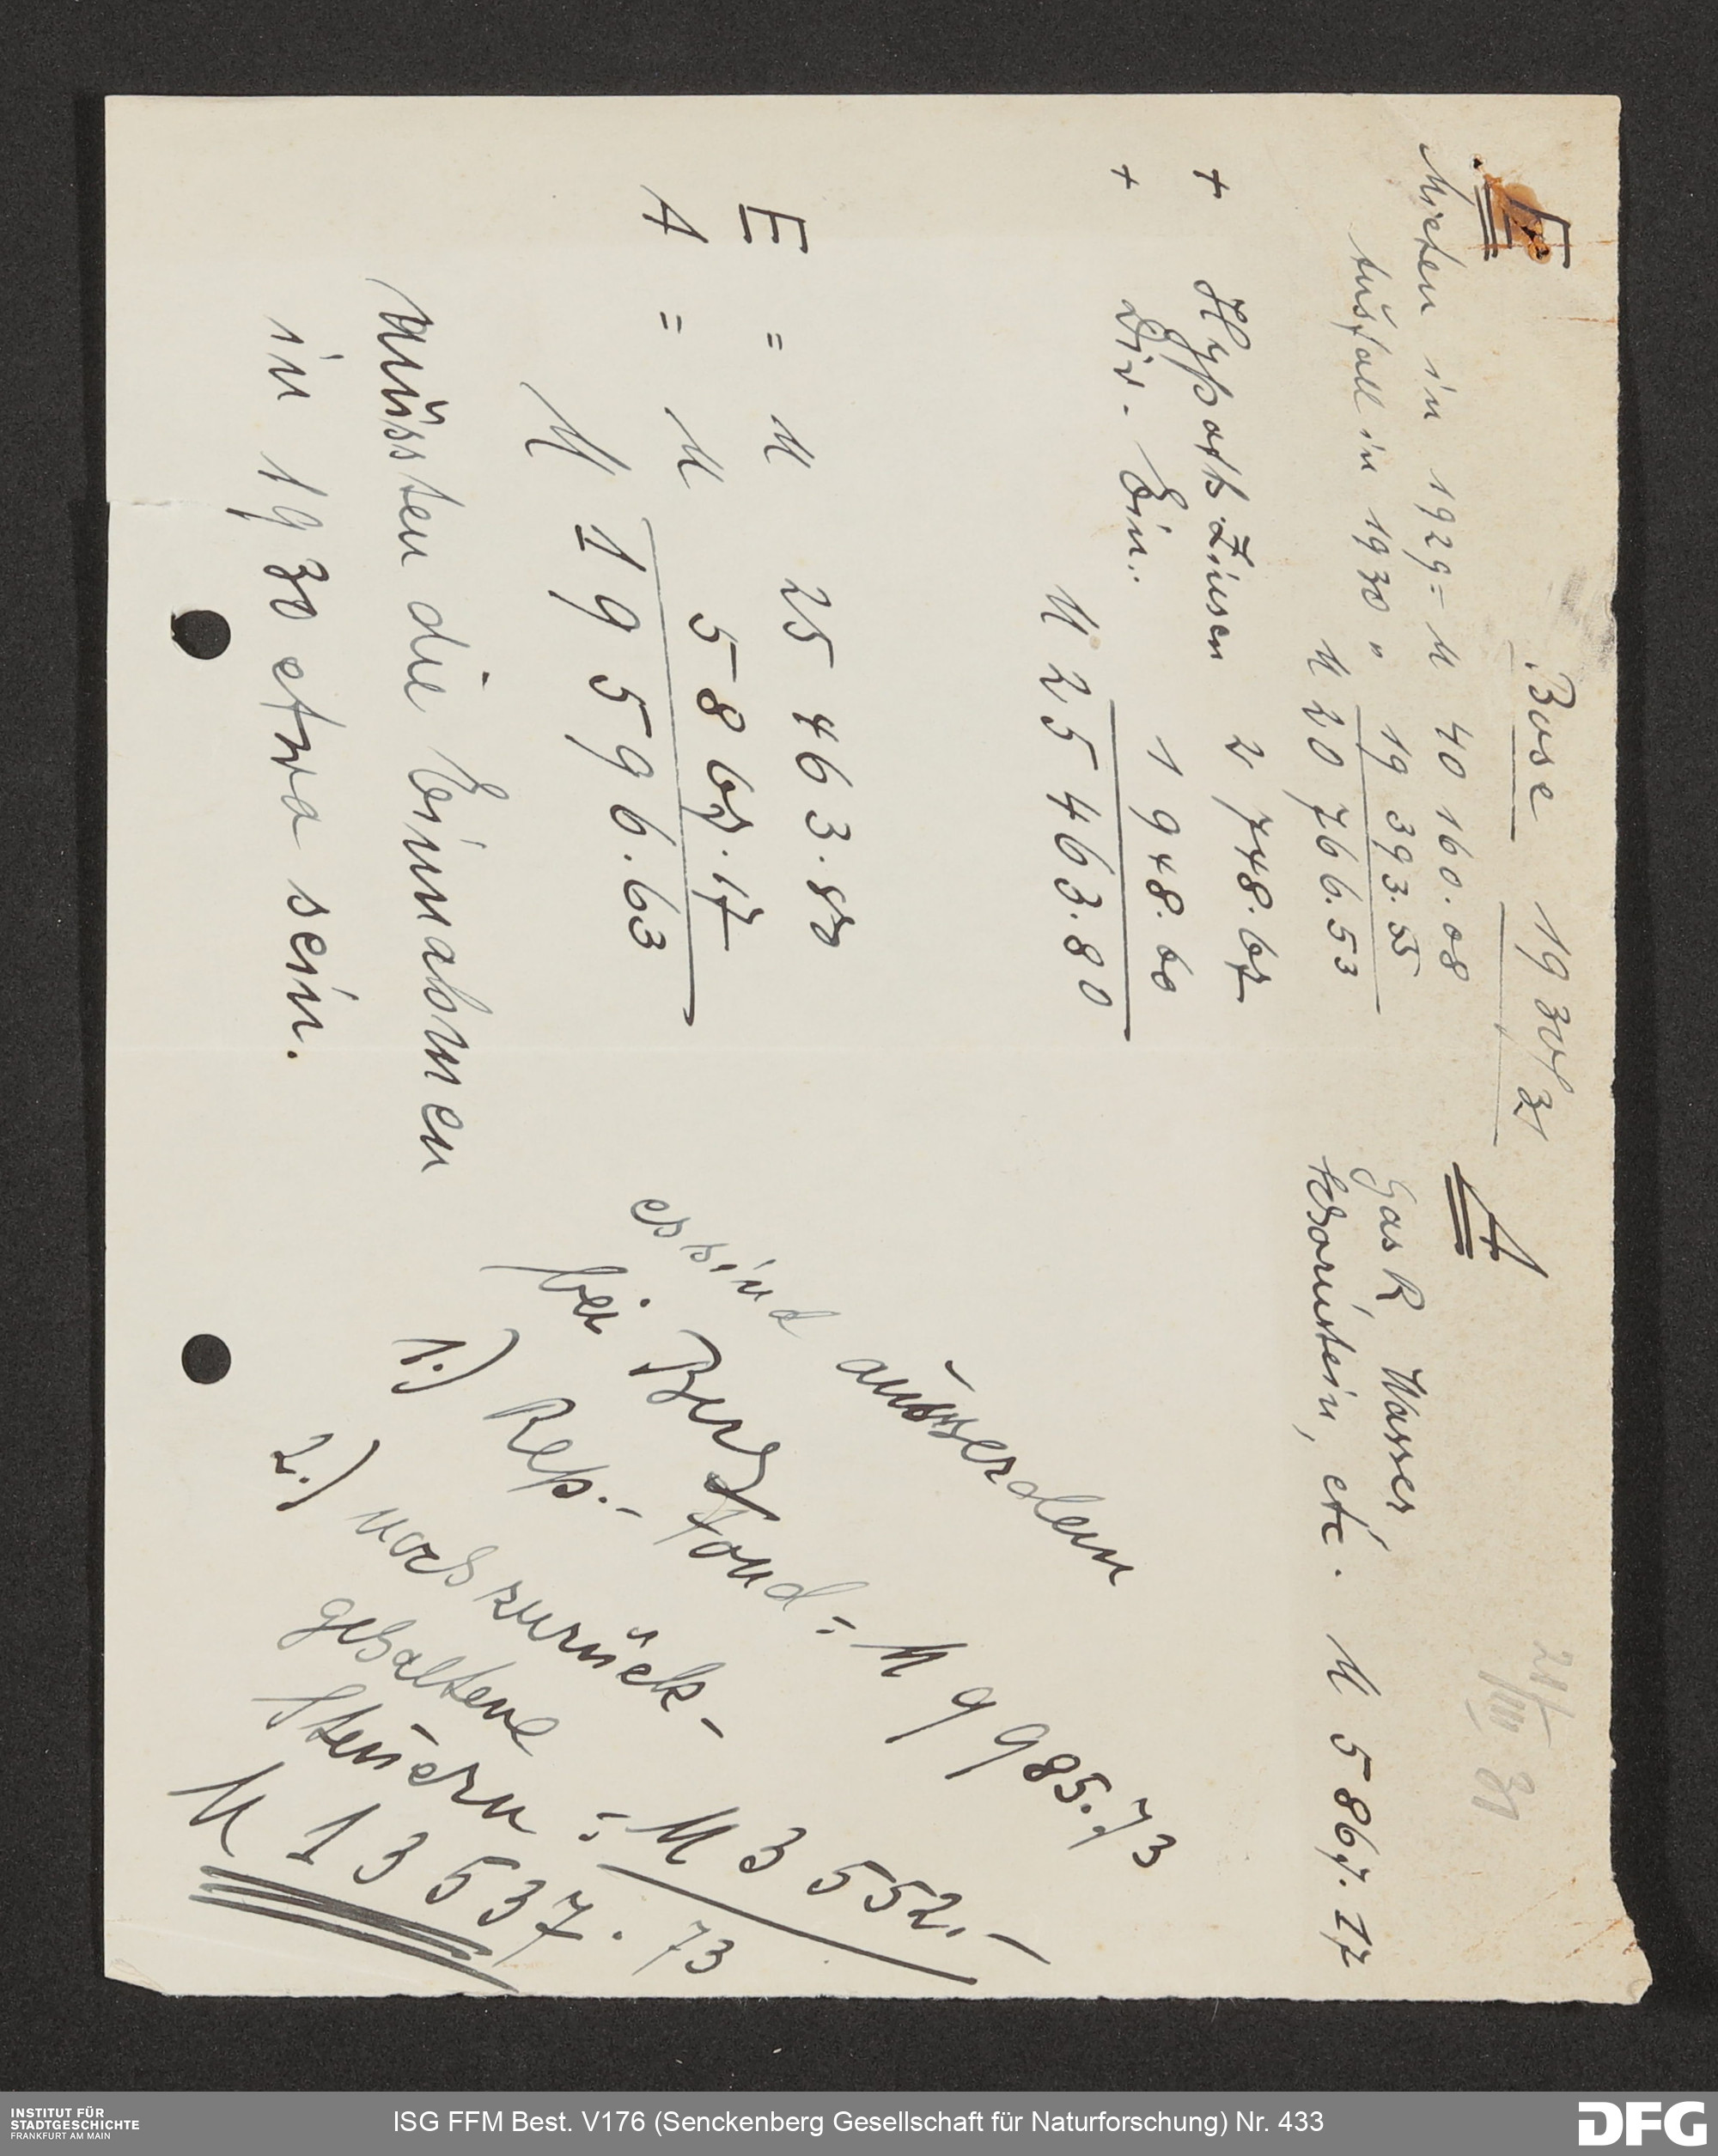 Bose 1930/31
21/III 31
E
Mieten in 1929 = M 40 160.08
Ausfall in 1930 " 19 393.55
M 20 766.53
+ Hypoth. Zinsen 2 748.67
+ Div. Ein. 1 948.60
M 25 463.80
A
Gas R Wasser
Schornstein, etc. M 5 867.17
E = M 25 463.80
A = M 5 867.17
M 19 596.63
müssten die Einnahmen
in 1930 etwa sein.
es sind ausserdem
bei Berg
1.) Rep.- Fond = M 9 985.73
2.) noch zurück-
gehaltene
Steuern = M 3 552.-
M 13 537.73
INSTITUT FÜR
STADTGESCHICHTE
FRANKFURT AM MAIN
ISG FFM Best. V176 (Senckenberg Gesellschaft für Naturforschung) Nr. 433
DFG